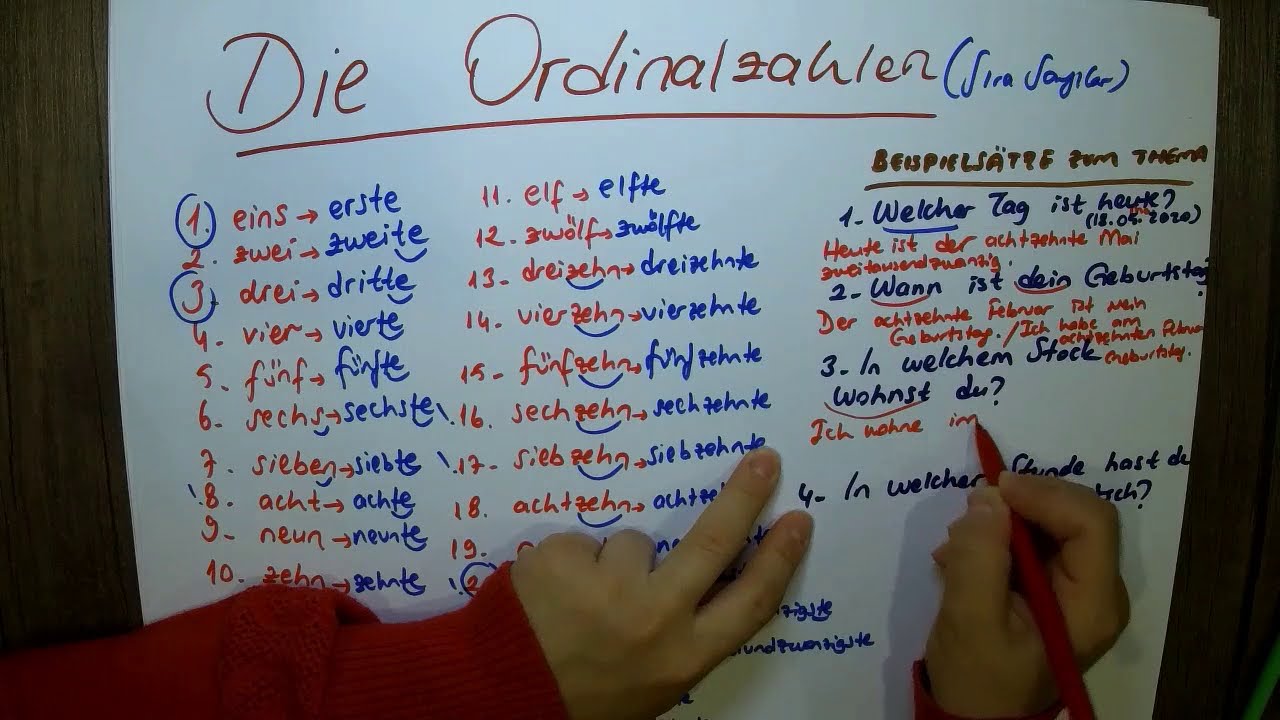 Die Ordinalzahlen (Sıra Sayıları)
1. eins → erste
2. zwei → zweite
3. drei → dritte
4. vier → vierte
5. fünf → fünfte
6. sechs → sechste
7. sieben → siebte
8. acht → achte
9. neun → neunte
10. zehn → zehnte
11. elf → elfte
12. zwölf → zwölfte
13. dreizehn → dreizehnte
14. vierzehn → vierzehnte
15. fünfzehn → fünfzehnte
16. sechzehn → sechzehnte
17. siebzehn → siebzehnte
18. achtzehn →
19.
BEISPIELSÄTZE ZUM THEMA
1- Welcher Tag ist heute?
(18.05.2020)
Heute ist der achtzehnte Mai
zweitausendzwanzig.
2- Wann ist dein Geburtstag
?
Der achtzehnte Februar ist mein
Geburtstag. / Ich habe am
achtzehnten Februar
Geburtstag.
3- In welchem Stock
wohnst du?
Ich wohne im
4- In welcher Stunde hast du